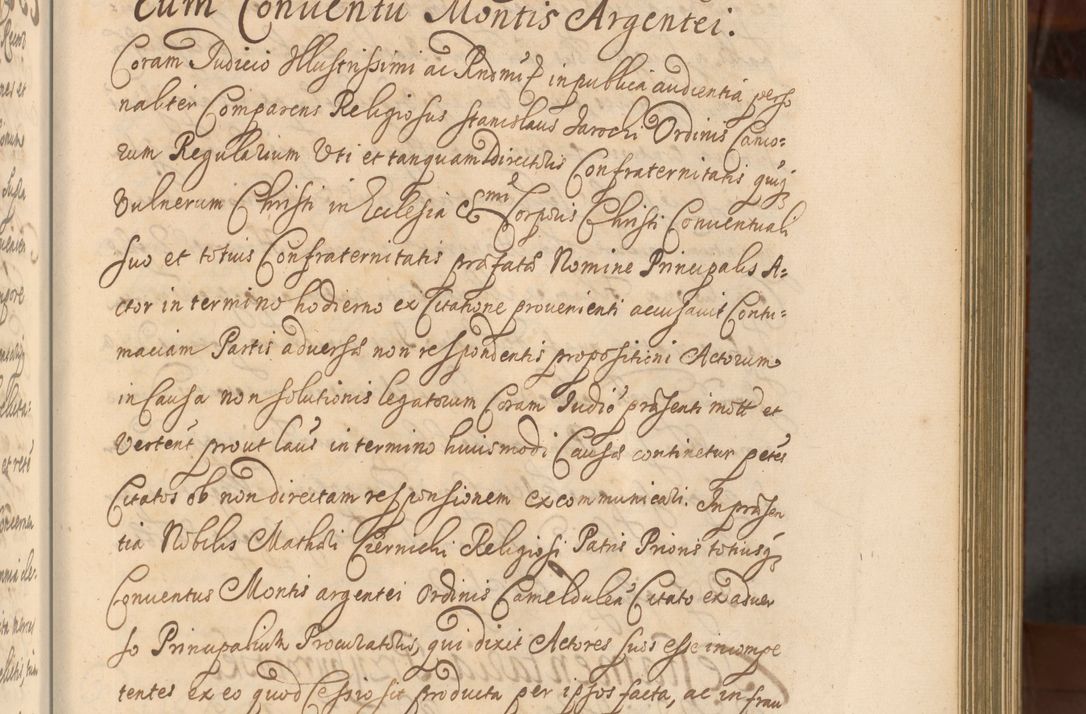 Cum Conventu Montis Argentei.
Coram Judicio Illustrissimi ac Rndmi E in publica audientia perso
naliter Comparens Religiosus Stanislaus Jarocki Ordinis Cano=
rum Regularium Uti et tanquam Directoris Confraternitatis quiqз
Vulnerum Christi in Ecclesia SSmi Corporis Christi Conventuali
suo et totius Confraternitatis præfatæ Nomine Principalis A=
ctor in termino hodierno ex Citatione provenienti accusavit Contu=
maciam Partis adversæ non respondentis propositioni Actorum
in Causa non solutionis legatorum Coram Judio præsenti mott et
Vertent prout laus in termino huiusmodi Causæ continetur petes
Citatos ob non directam responsionem excommunicari. In præsen
tia Nobilis Mathæi Czernichi Religiosi Patris Prioris totiusqз
Conventus Montis argentei Ordinis Cameldulen Citato ex adver
so Principalium Procuratoris, qui dixit Actores suos esse incompe
tentes ex eo quod Cessio sit producta per ipsos facta, ac in frau